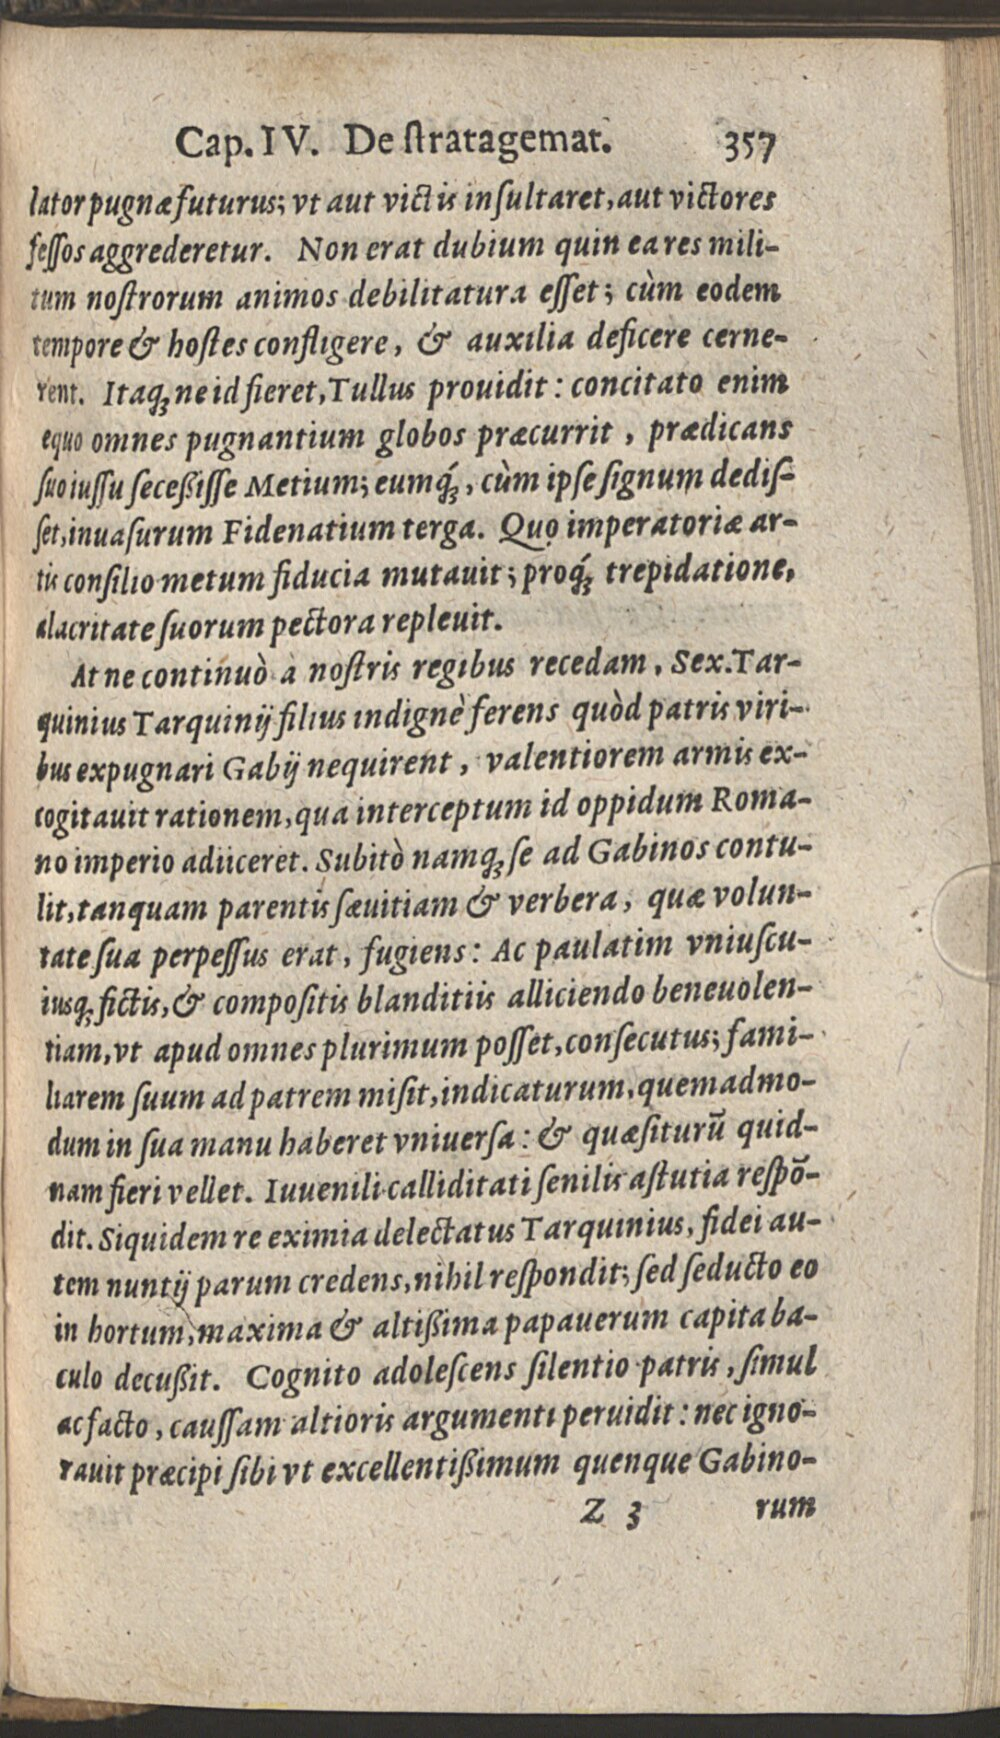 Cap. IV. De ſtratagemat. 357
lator pugnæ futurus; vt aut victis inſultaret, aut victores
feſſos aggrederetur. Non erat dubium quin ea res mili-
tum noſtrorum animos debilitatura eſſet; cùm eodem
tempore & hoſtes confligere, & auxilia deficere cerne-
rent. Itaq́; ne id fieret, Tullus prouidit: concitato enim
equo omnes pugnantium globos præcurrit, prædicans
ſuo iuſſu ſeceßiſſe Metium; eumq́;, cùm ipſe ſignum dediſ-
ſet, inuaſurum Fidenatium terga. Quo imperatoriæ ar-
tis conſilio metum fiducia mutauit; proq́; trepidatione,
alacritate ſuorum pectora repleuit.
At ne continuò a noſtris regibus recedam, Sex. Tar-
quinius Tarquinij filius indignè ferens quòd patris viri-
bus expugnari Gabij nequirent, valentiorem armis ex-
cogitauit rationem, qua interceptum id oppidum Roma-
no imperio adiiceret. Subitò namq; ſe ad Gabinos contu-
lit, tanquam parentis ſæuitiam & verbera, quæ volun-
tate ſua perpeſſus erat, fugiens: Ac paulatim vniuſcu-
iusq; fictis, & compoſitis blanditiis alliciendo beneuolen-
tiam, vt apud omnes plurimum poſſet, conſecutus; fami-
liarem ſuum ad patrem miſit, indicaturum, quemadmo-
dum in ſua manu haberet vniuerſa: & quæſiturū quid-
nam fieri vellet. Iuuenili calliditati ſenilis aſtutia reſpō-
dit. Siquidem re eximia delectatus Tarquinius, fidei au-
tem nuntij parum credens, nihil reſpondit; ſed ſeducto eo
in hortum, maxima & altißima papauerum capita ba-
culo decußit. Cognito adoleſcens ſilentio patris, ſimul
ac facto, cauſſam altioris argumenti peruidit: nec igno-
rauit præcipi ſibi vt excellentißimum quenque Gabino-
Z 3 rum